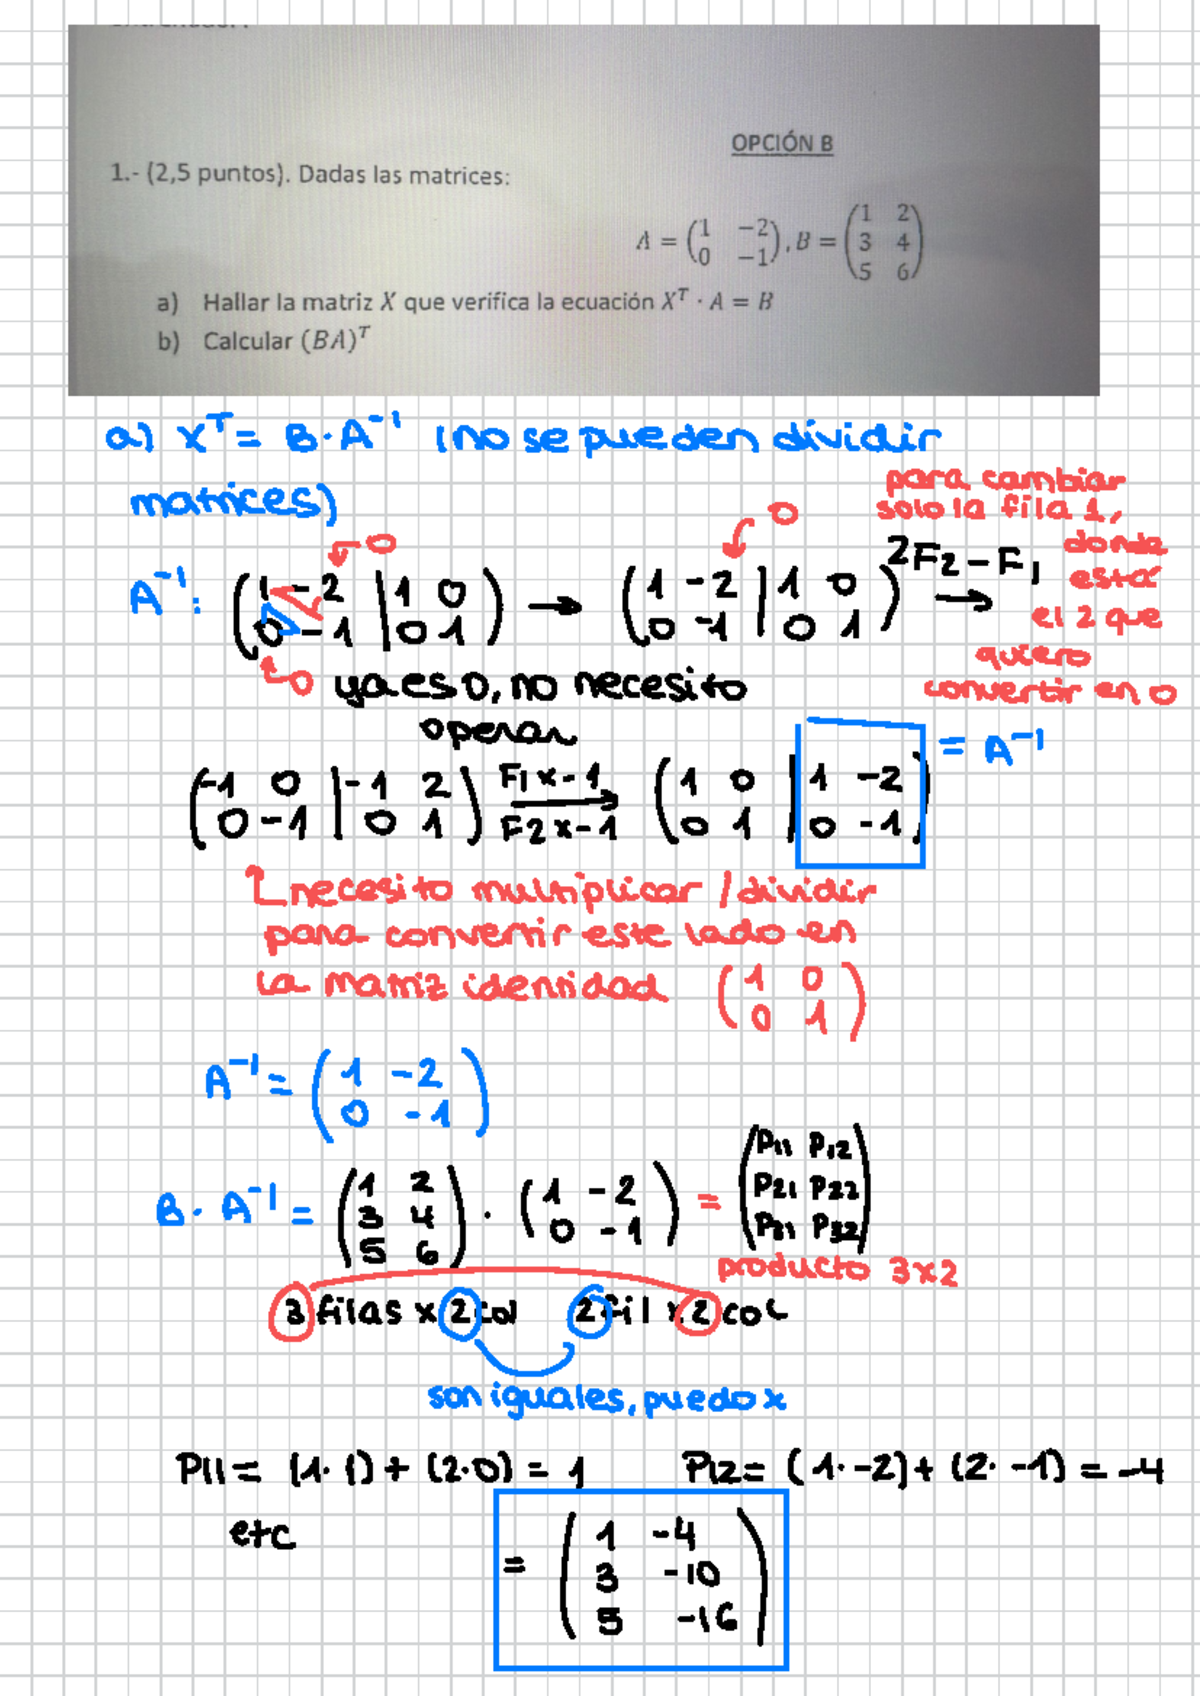 OPCIÓN B
1.- (2,5 puntos). Dadas las matrices:
A = (1 -2; 0 -1), B = (1 2; 3 4; 5 6)
a) Hallar la matriz X que verifica la ecuación Xᵀ · A = B
b) Calcular (BA)ᵀ
a) xᵀ = B·A⁻¹ (no se pueden dividir
matrices)
para cambiar
solo la fila 1,
donde
está
el 2 que
quiero
convertir en 0
0
0
A⁻¹: (1 -2 | 1 0; 0 -1 | 0 1) → (1 -2 | 1 0; 0 -1 | 0 1) 2F2 - F1 →
0 ya es 0, no necesito
operar
(-1 0 | -1 2; 0 -1 | 0 1) F1 x -1 F2 x -1 → (1 0 | 1 -2; 0 1 | 0 -1) = A⁻¹
necesito multiplicar / dividir
para convertir este lado en
la matriz identidad (1 0; 0 1)
A⁻¹ = (1 -2; 0 -1)
B · A⁻¹ = (1 2; 3 4; 5 6) · (1 -2; 0 -1) = (P11 P12; P21 P22; P31 P32)
producto 3x2
3 filas x 2 col 2 fil x 2 col
son iguales, puedo x
P11 = (1·1) + (2·0) = 1 P12 = (1·-2) + (2·-1) = -4
etc
= (1 -4; 3 -10; 5 -16)